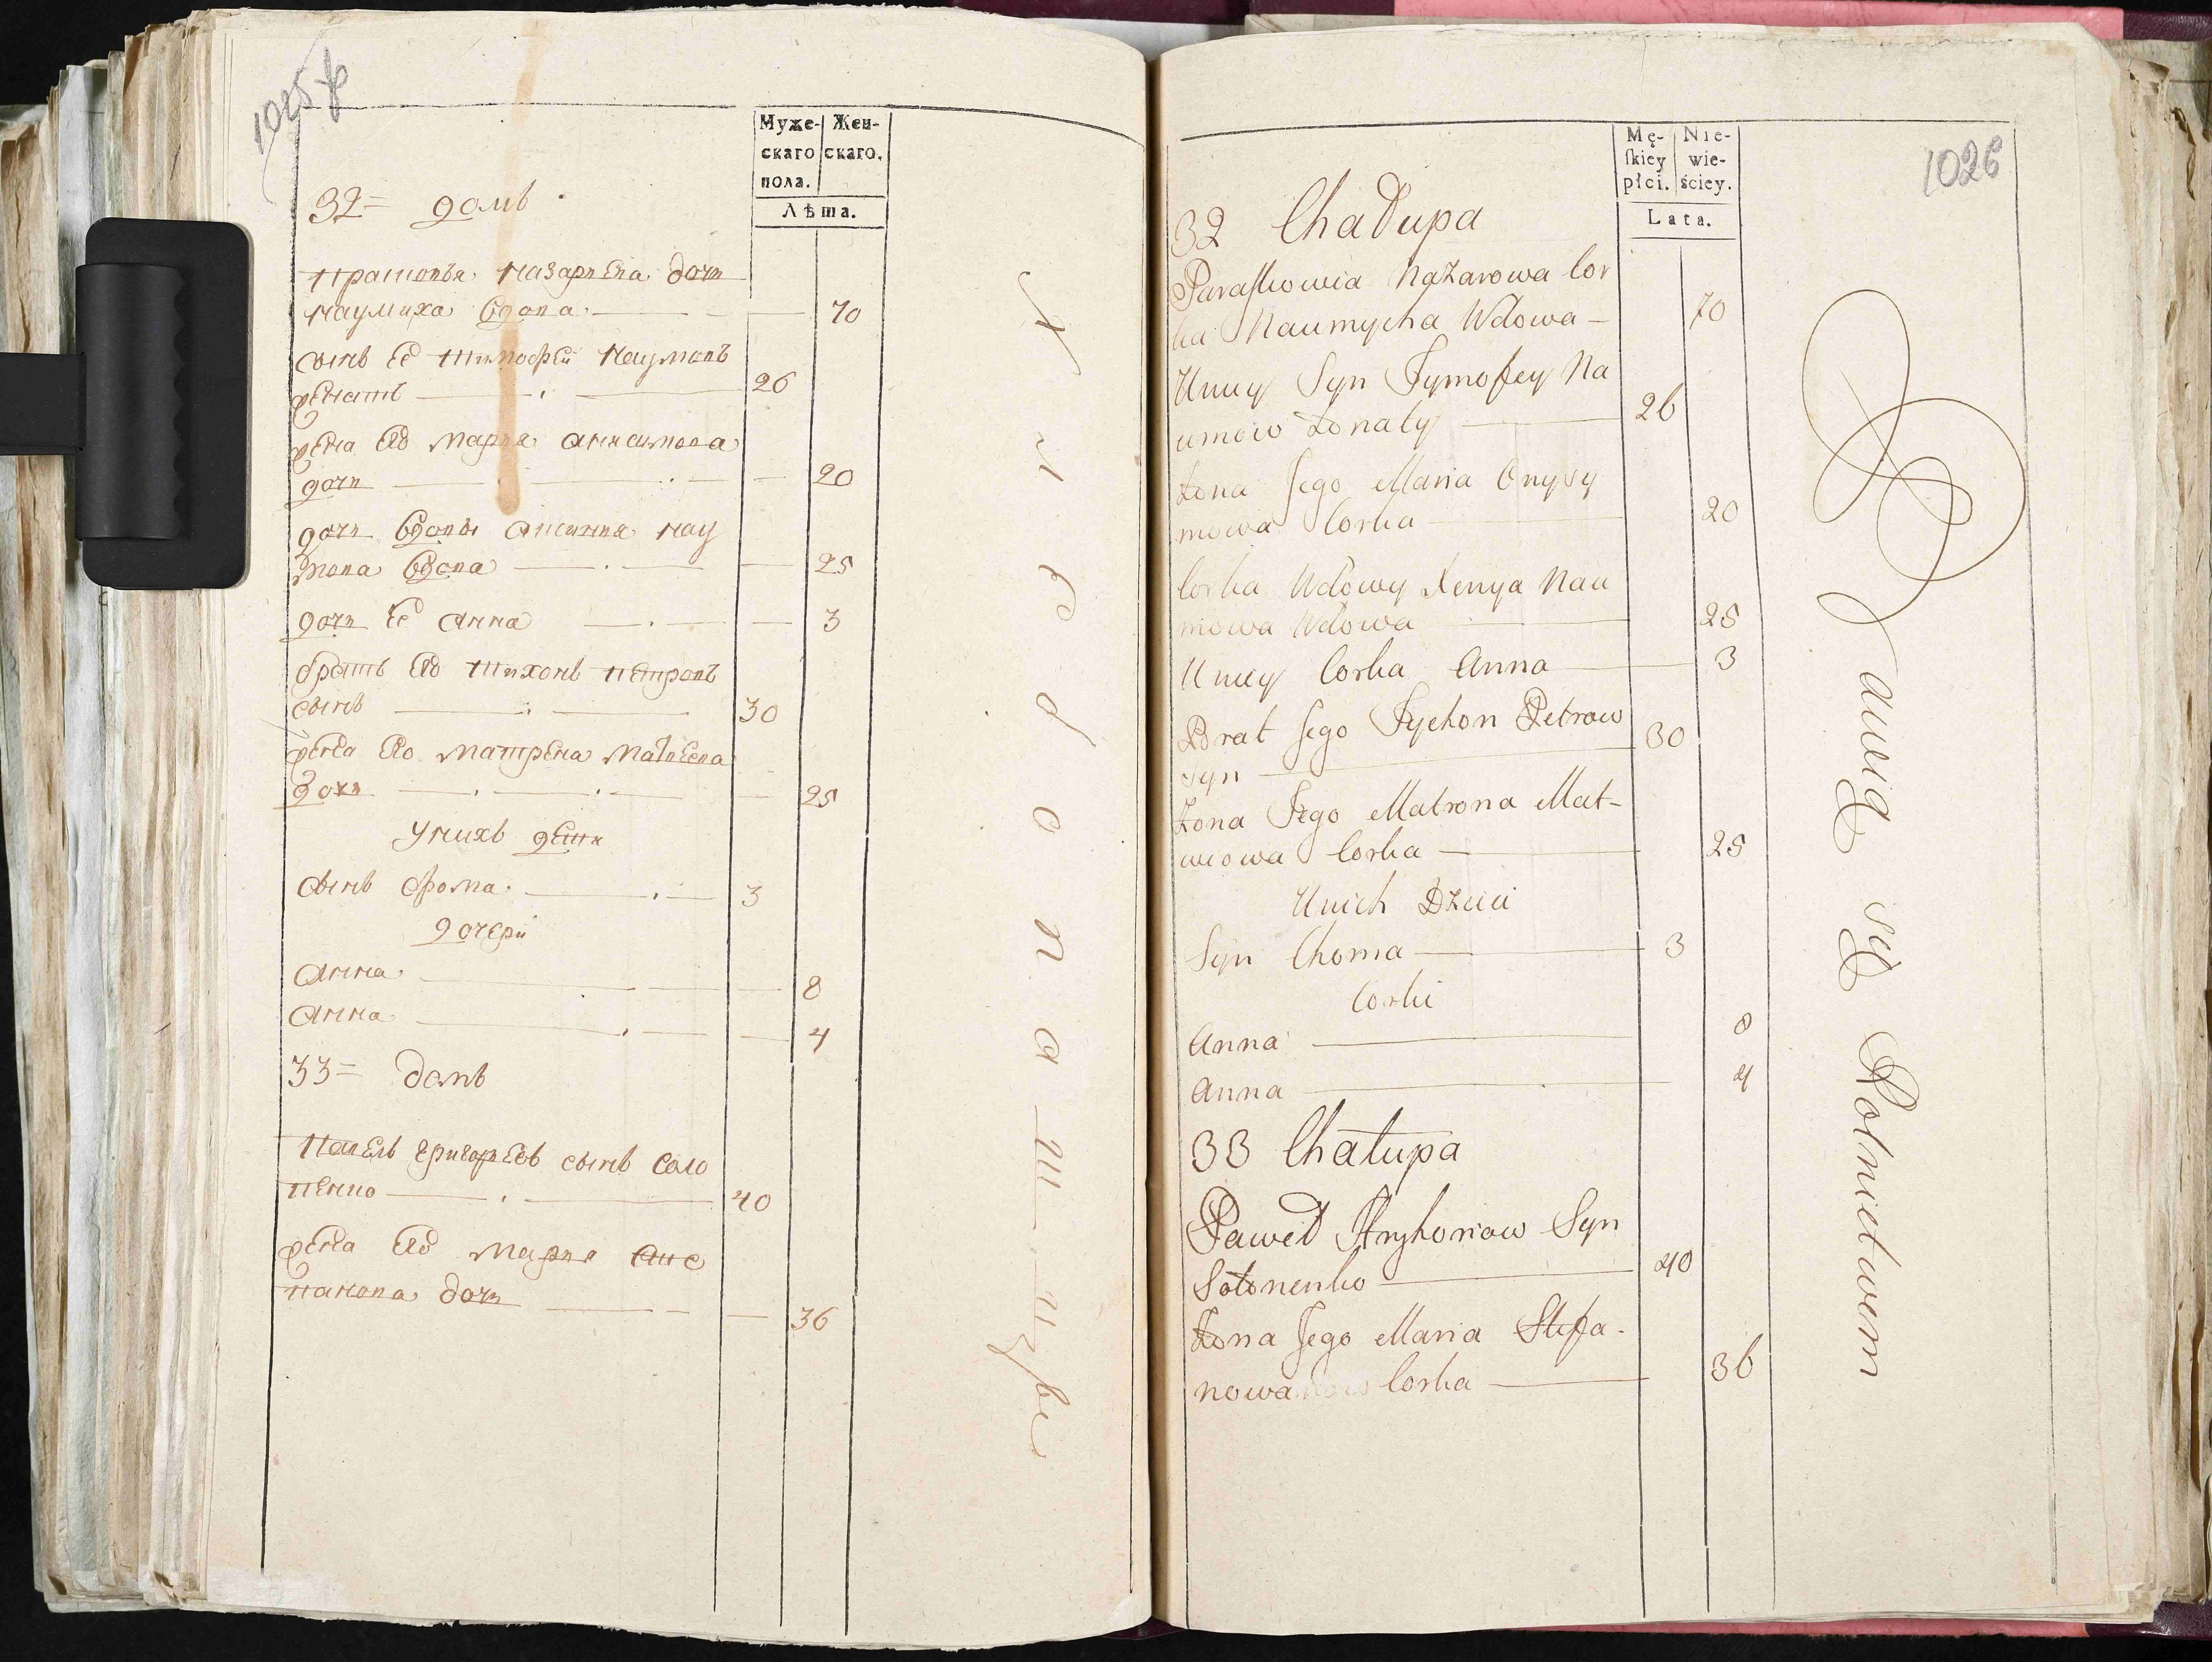 1025
Муже- Жен-
скаго скаго.
пола.
Лѣта.
32 = домъ
Прасковья Назариева дочь
Наумиха вдова 70
сынъ Ее Тимофей Наумовъ
женатъ 26
жена Его Мария Анисимова
дочь 20
дочь вдовы Аксиния Нау
мова вдова 25
дочь Ее Анна 3
братъ Его Тихонъ Петровъ
сынъ 30
жена Его Матрена Матвеева
дочь 25
У нихъ дети
сынъ Фома 3
дочери
Анна 8
Анна 4
33 = домъ
Павелъ Григориевъ сынъ Соло
ненко 40
жена Его Мария Сте
панова дочь 36
1026
Mę- Nie-
skiey wie-
płci. ściey.
Lata.
32 Chałupa
Paraskowia Nazarowa Cor
ka Naumycha Wdowa 70
U niey Syn Tymofey Na
umow Żonaty 26
Żona Jego Maria Onysy
mowa Corka 20
Corka Wdowy Xenya Nau
mowa Wdowa 25
U niey Corka Anna 3
Brat Jego Tychon Petrow
Syn 30
Żona Jego Matrona Mat-
wiowa Corka 25
U nich Dzieci
Syn Choma 3
Corki
Anna 8
Anna 4
33 Chałupa
Paweł Hryhoriow Syn
Sołonenko 40
Żona Jego Maria Stefa-
nowa Corka 36
Bawią się Rolnictwem